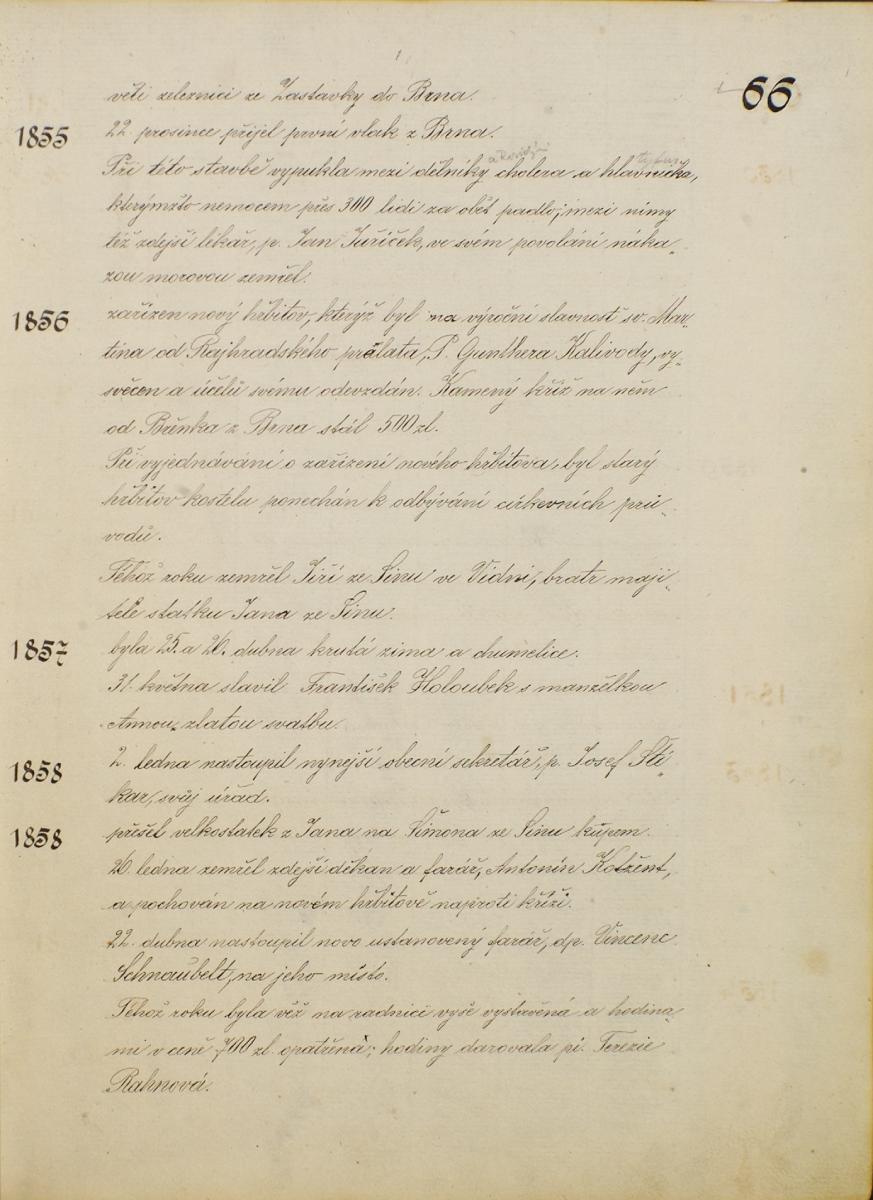 66
věti zeleznici ze Zastávky do Brna.
1855 22. prosince přijel první vlak z Brna.
Při této stavbě vypukla mezi dělníky cholera a hlavnička,
kterýmžto nemocem přes 300 lidí za oběť padlo; mezi nimy
též zdejší lékař, p. Jan Juříček, ve svém povolání náka„
zou morovou zemřel.
1856 zařízen nový hřbitov, kterýž byl na výroční slavnost sv. Mar„
tina od Rajhradského prálata, P. Gunthera Kalivody, vy„
svěcen a účelů svému odevzdán. Kamený kříž na něm
od Břenka z Brna stál 500 zl.
Při vyjednávání o zařízení nového hřbitova, byl starý
hřbitov kostelu ponechán k odbývání církevních prů„
vodů.
Téhož roku zemřel Jiří ze Sinu ve Vídni, bratr maji„
tele statku Jana ze Sinu.
1857 byla 25. a 26. dubna krutá zima a chumelice.
31. května slavil František Holoubek s manželkou
Annou, zlatou svatbu.
1858 2. ledna nastoupil nynejší obecní sekretář, p. Josef Sti„
kar, svůj úřad.
1858 přešel velkostatek z Jana na Šimona ze Sinu kupem.
26. ledna zemřel zdejší děkan a farář, Antonín Kotžent,
a pochován na novém hřbitově naproti kříži.
22. dubna nastoupil novo ustanovený farář, dp. Vincenc
Schnaubelt, na jeho místo.
Téhož roku byla věž na radnici vyše vystavěná a hodina„
mi v ceně 700 zl. opatřená; hodiny darovala pí. Terezie
Rahnová.